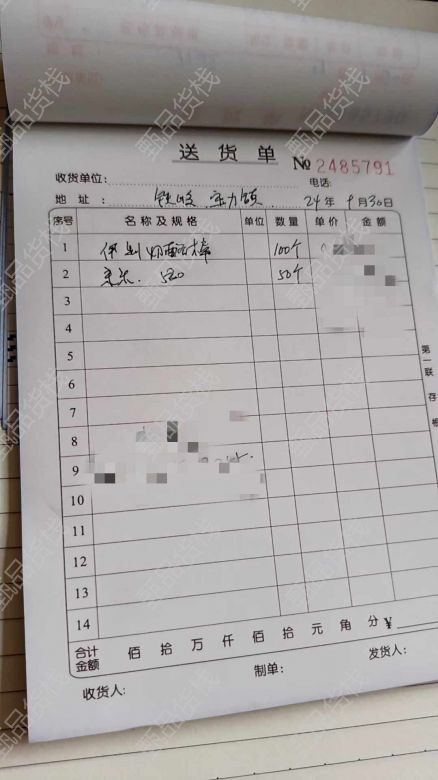 送货单 No 2485791
收货单位: 电话:
地址: 24年9月30日
序号 名称及规格 单位 数量 单价 金额
1 伊利奶酪棒 100个
2 京东. 520 50个
3
4
5
6
7
8
9
10
11
12
13
14
第一联存根
合计金额 佰 拾 万 仟 佰 拾 元 角 分 ¥
收货人: 制单: 发货人:
甄品货栈